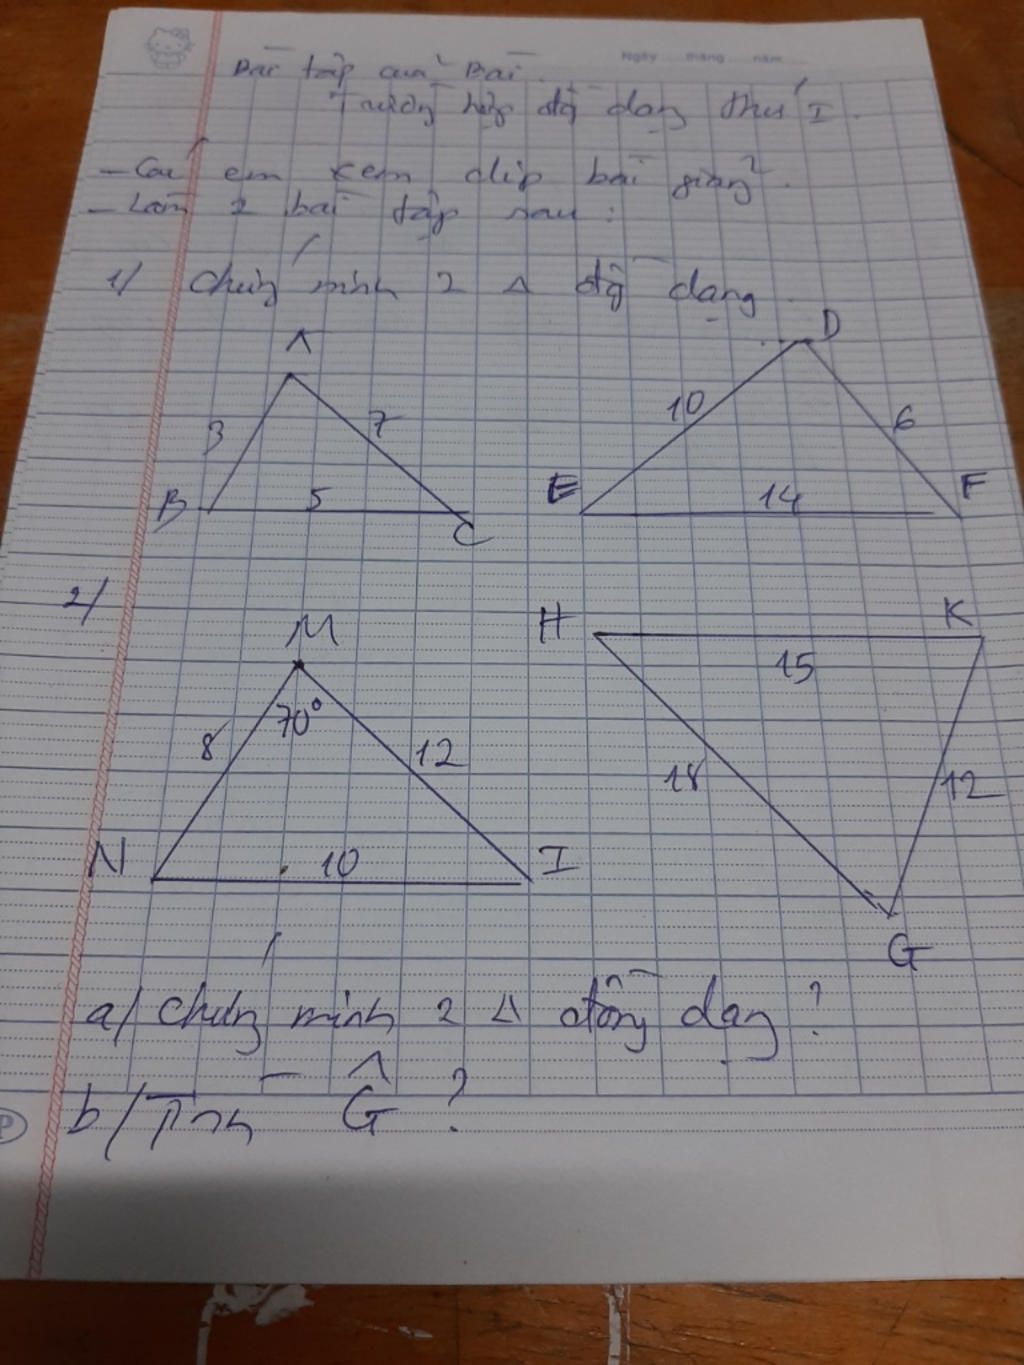 Bài tập của Bài.
Ngày tháng năm
Trường hợp đồng dạng thứ I.
- Các em xem clip bài giảng.
- Làm 2 bài tập sau:
1/ Chứng minh 2 Δ đồng dạng.
A D
3 7 10 6
B 5 C E 14 F
2/
M H K
70° 15
8 12 18 12
N 10 I
G
a/ Chứng minh 2 Δ đồng dạng?
b/ Tính Ĝ?